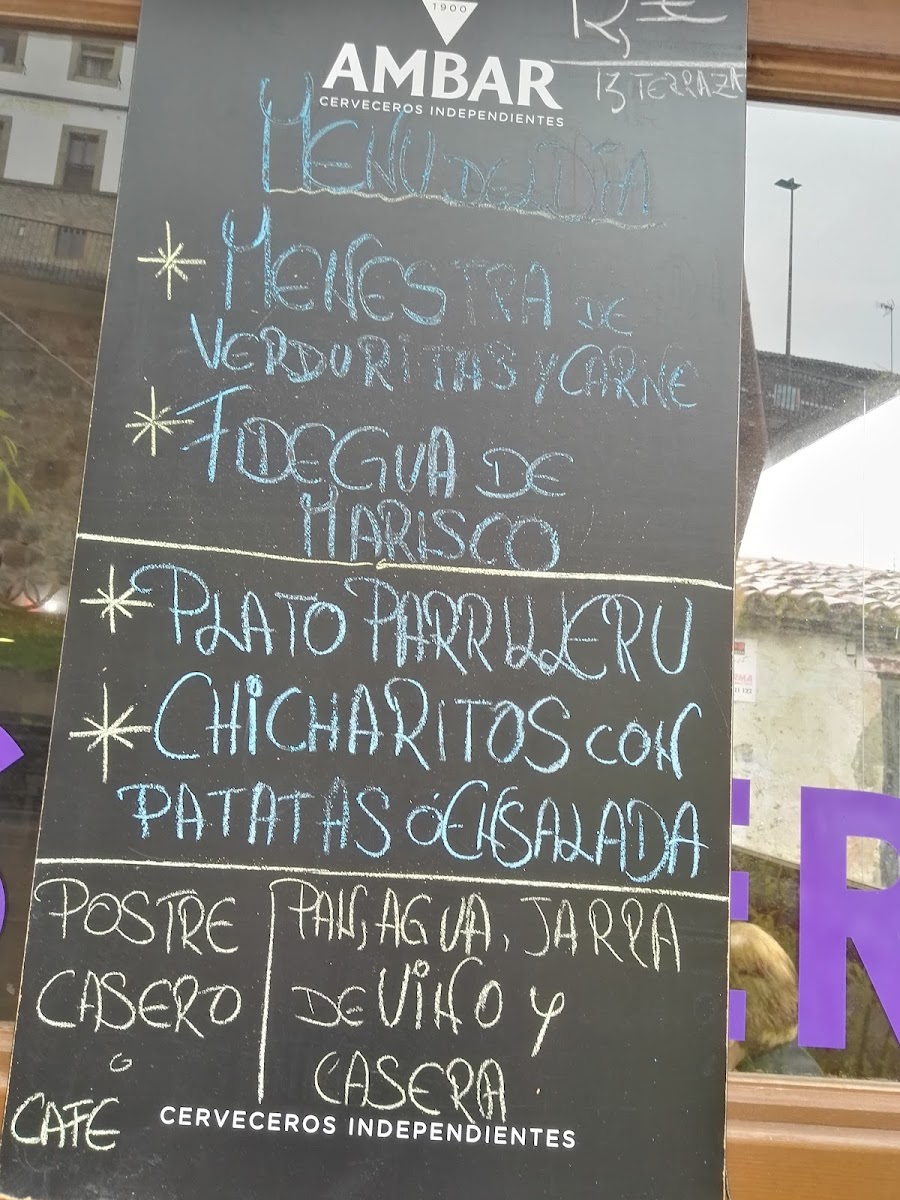 1900
AMBAR
CERVECEROS INDEPENDIENTES
12,€
13 TERRAZA
MENU DEL DÍA
MENESTRA DE
VERDURITAS Y CARNE
FIDEGUA DE
MARISCO
PLATO PARRILLERU
CHICHARITOS CON
PATATAS Ó ENSALADA
POSTRE
CASERO
O
CAFE
PAN, AGUA, JARRA
DE VINO Y
CASERA
CERVECEROS INDEPENDIENTES
ER